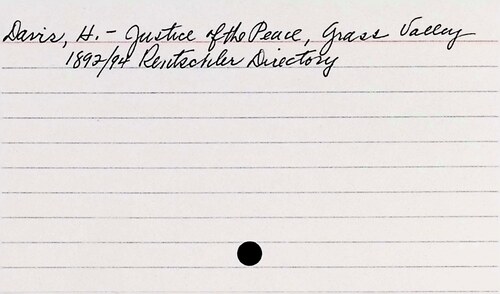 Davis, H. - Justice of the Peace, Grass Valley
1892/94 Rentschler Directory